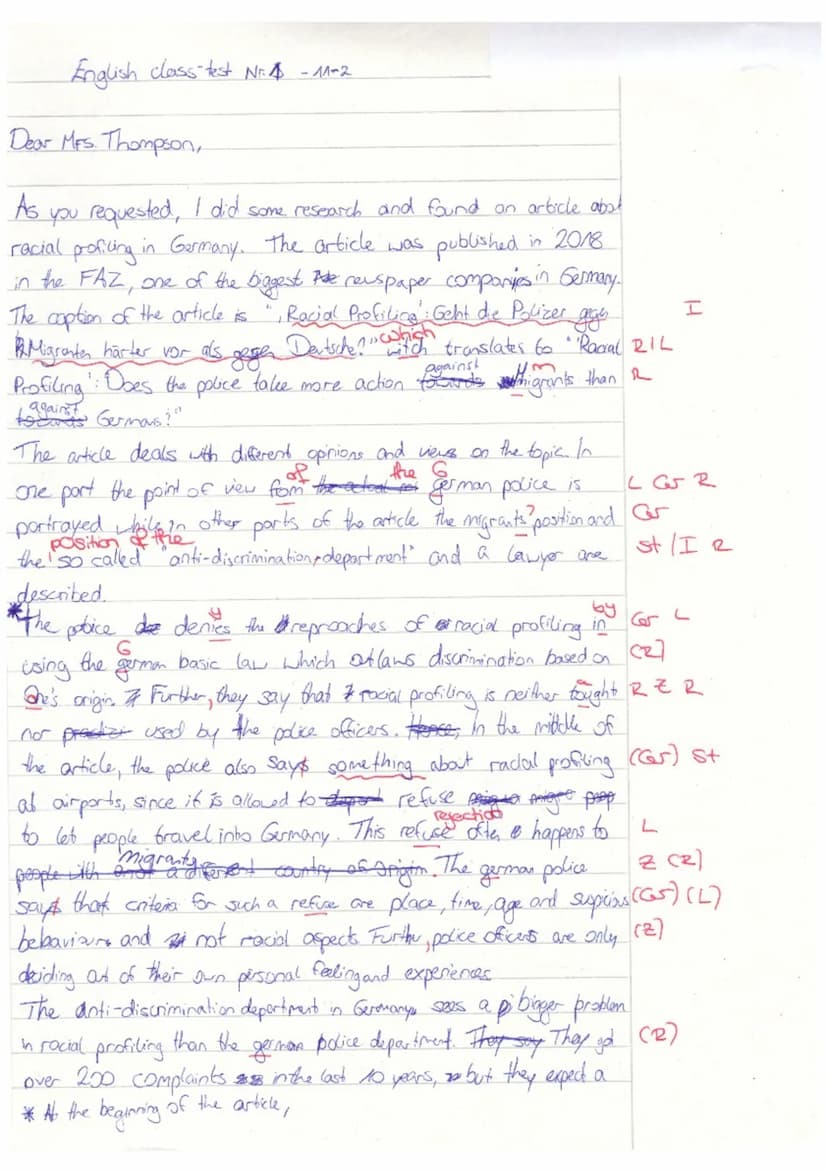 English class-test Nr. 1 - 11-2
Dear Mrs. Thompson,
As you requested, I did some research and found an article abot
racial profiling in Germany. The article was published in 2018
in the FAZ, one of the biggest newspaper companies in Germany.
The caption of the article is ",Racial Profiling': Geht die Polizei gegen
I
Migranten härter vor als gegen Deutsche?" witch translates to "'Racial
which
R I L
Profiling': Does the police take more action towards Migrants than
against
m
R
towards Germans?"
against
The article deals with different opinions and views on the topic. In
one part the point of view from german police is
of the G
L Gr R
portrayed while in other parts of the article the migrants position and
'
Gr
the so called "anti-discrimination-department" and a lawyer are
position of the
St / I R
described.
*The police denies the reproaches of racial profiling in
y
by
Gr L
using the german basic law which outlaws discrimination based on
G
(R)
One's origin. Further, they say that racial profiling is neither tought
R Z R
nor used by the police officers. In the middle of
the article, the police also says something about racial profiling
(Gr) St
at airports, since it is allowed to refuse
to let people travel into Germany. This refuse often happens to
rejection
L
Migrants. The german police
Z (R)
says that criteria for such a refuse are place, time, age and suspicius
(Gr) (L)
behaviours and not racial aspects. Further, police officers are only
(Z)
deciding out of their own personal feeling and experiences
The Anti-discrimination department in Germany sees a bigger problem
in racial profiling than the german police department. They got
(R)
over 200 complaints in the last 10 years, but they expect a
* At the beginning of the article,